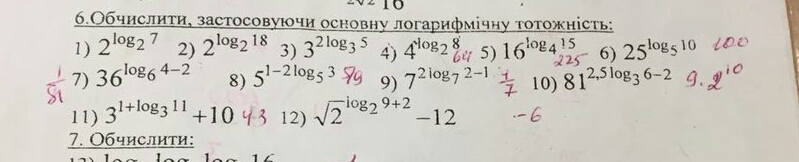 6.Обчислити, застосовуючи основну логарифмічну тотожність:
1) 2^{log₂ 7} 2) 2^{log₂ 18} 3) 3^{2log₃ 5} 4) 4^{log₂ 8} 64 5) 16^{log₄ 15} 225 6) 25^{log₅ 10} 100
1/81 7) 36^{log₆ 4−2} 8) 5^{1−2log₅ 3} 5/9 9) 7^{2log₇ 2−1} 10) 81^{2,5log₃ 6−2} 9·2^{10}
11) 3^{1+log₃ 11} +10 43 12) √2^{log₂ 9+2} −12 −6
7. Обчислити: